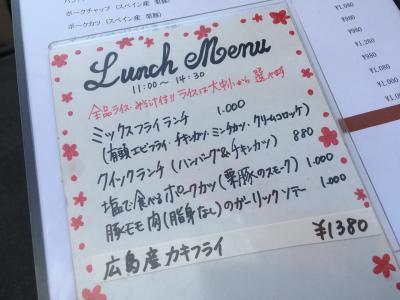 ポークチャップ（スペイン産 栗豚）
ポークカツ（スペイン産 栗豚）
¥980
¥980
¥1,280
¥980
¥1,080
¥1,080
Lunch Menu
11:00 〜 14:30
全品ライス・みそ汁付!! ライスは大中小から選べます
ミックスフライランチ 1.000
(有頭エビフライ・チキンカツ・ミンチカツ・クリームコロッケ)
クイックランチ (ハンバーグ&チキンカツ) 880
塩で食べるポークカツ(栗豚のスモーク) 1.000
豚モモ肉(脂身なし)のガーリックソテー 1.000
広島産カキフライ ¥1380